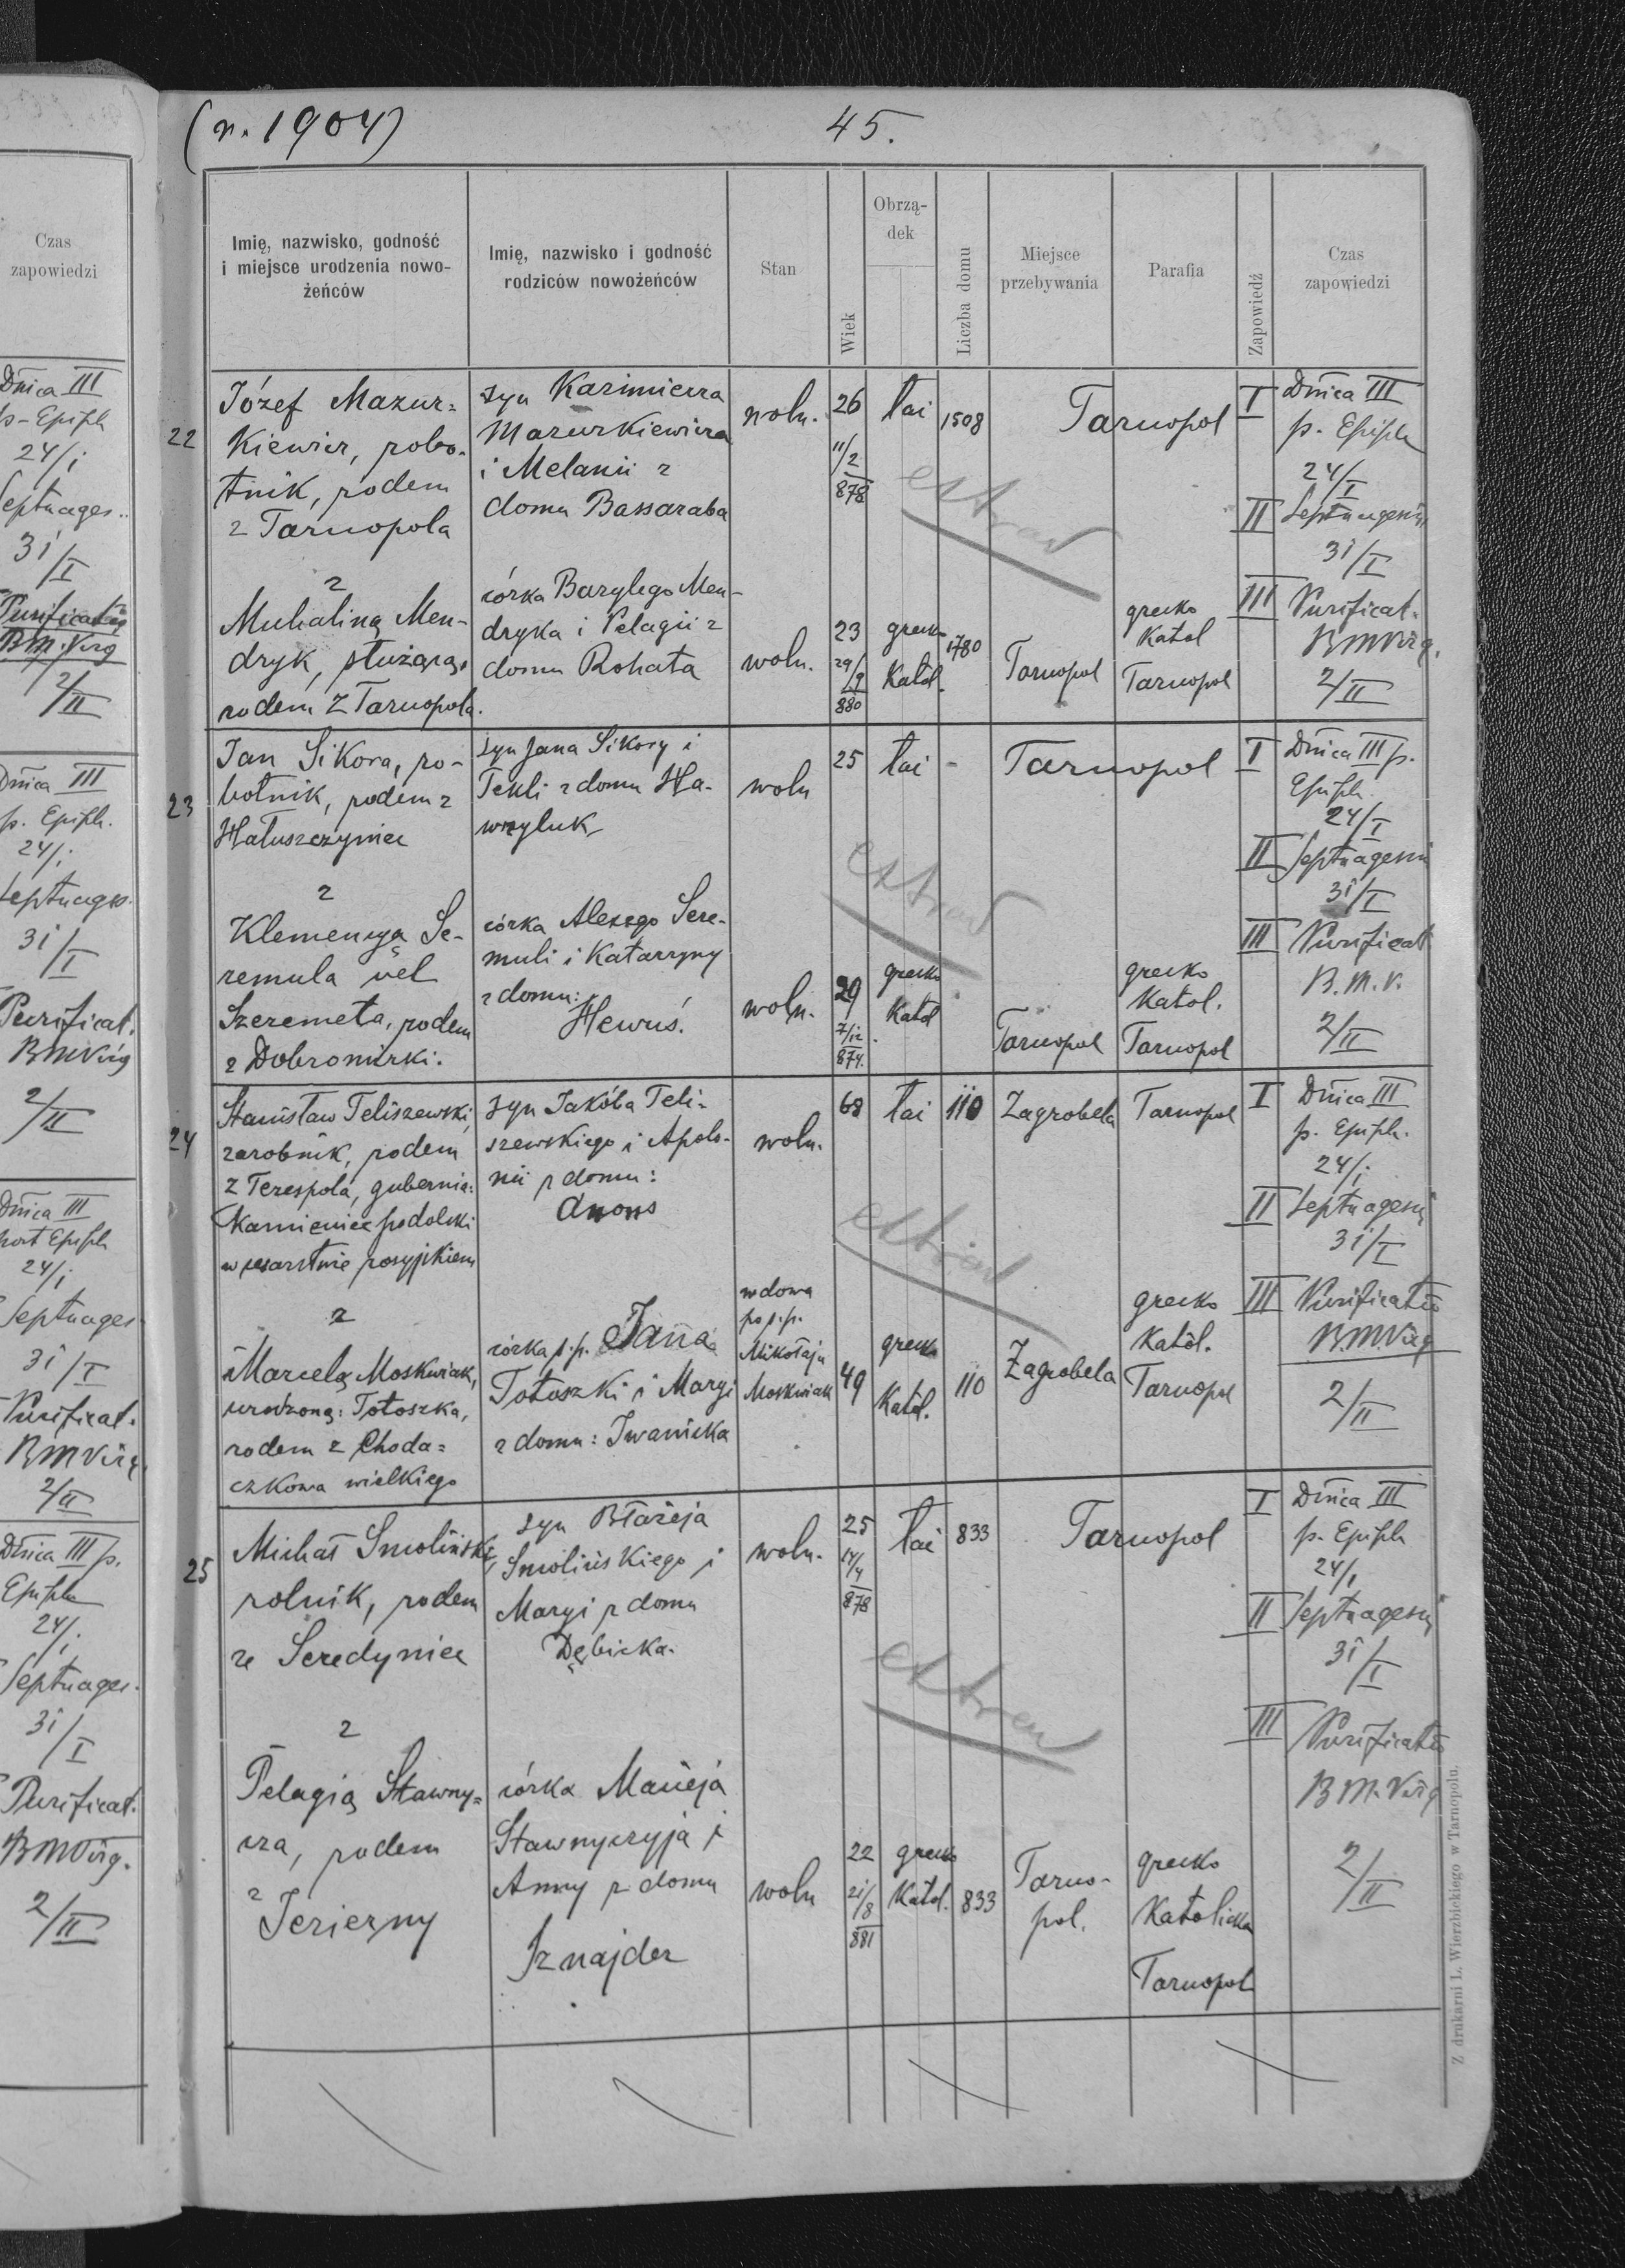 (r. 1904)
45.
Czas
zapowiedzi
Dnica III
p-Epiph
24/i
Septuages.
31/I
Purificatio
BM.Virg
2/II
Dnica III
p. Epiph.
24/i
Septuages.
31/I
Purificat.
BMVirg
2/II
Dnica III
post Epiph
24/i
Septuages
31/I
Purificat.
BMVirg.
2/II
Dnica III p.
Epiph
24/i
Septuages.
31/I
Purificat.
BMVirg.
2/II
Imię, nazwisko, godność
i miejsce urodzenia nowo-
żeńców
Imię, nazwisko i godność
rodziców nowożeńców
Stan
Wiek
Obrzą-
dek
Liczba domu
Miejsce
przebywania
Parafia
Zapowiedź
Czas
zapowiedzi
22
Józef Mazur=
kiewicz, robo-
tnik, rodem
z Tarnopola
syn Kazimierza
Mazurkiewicza
i Melanii z
domu Bassaraba
woln.
26
11/2
878
łac
1508
Tarnopol
I
Dnica III
p. Epiph
24/I
II
Septuagesi
31/I
III
Purificat.
BMVirg.
2/II
extrad
z
Michaliną Men-
dryk, służącą,
rodem z Tarnopola.
córka Bazylego Men-
dryka i Pelagii z
domu Rohata
woln.
23
29/9
880
grecko
katol.
1780
Tarnopol
grecko
katol
Tarnopol
23
Jan Sikora, ro-
botnik, rodem z
Hałuszczyniec
syn Jana Sikory i
Tekli z domu Ha-
wryluk
woln
25
łac
-
Tarnopol
I
Dnica III p.
Epiph.
24/I
II
Septuagesi
31/I
III
Purificat
B.M.V.
2/II
extrad
z
Klemencyą Se-
remula vel
Szeremeta, rodem
z Dobromirki.
córka Alexego Sere-
muli i Katarzyny
z domu:
Hewuś.
woln.
29
7/12
874.
grecko
katol.
Tarnopol
grecko
katol.
Tarnopol
24
Stanisław Teliszewski,
zarobnik, rodem
z Terespola, gubernia:
Kamieniec podolski
w cesarstwie rosyjskiem
syn Jakóba Teli-
szewskiego i Apolo-
nii z domu:
woln.
68
łac
110
Zagrobela
Tarnopol
I
Dnica III
p. Epiph.
24/i
II
Septuagesi
31/I
III
Purificatio
B.M.Virg
2/II
extrad
z
Marcelą Moskwiak,
urodzoną: Tołoszka,
rodem z Choda=
czkowa wielkiego
córka ś.p. Jana
Tołoszki i Maryi
z domu: Iwanicka
wdowa
po ś.p.
Mikołaju
Moskwiak
49
grecko
katol.
110
Zagrobela
grecko
katol.
Tarnopol
25
Michał Smoliński,
rolnik, rodem
ze Seredyniec
syn Błażeja
Smolińskiego i
Maryi z domu
Dębicka.
woln.
25
14/4
878
łac
833
Tarnopol
I
Dnica III
p. Epiph
24/I
II
Septuagesi
31/I
III
Purificatio
B M.Virg
2/II
extrad
z
Pelagią Stawny=
cza, rodem
z
Jezierny
córka Macieja
Stawnyczyja i
Anny z domu
Sznajder
woln
22
21/8
881
grecko
katol.
833
Tarno-
pol.
grecko
katolicka
Tarnopol
Z drukarni L. Wierzbickiego w Tarnopolu.